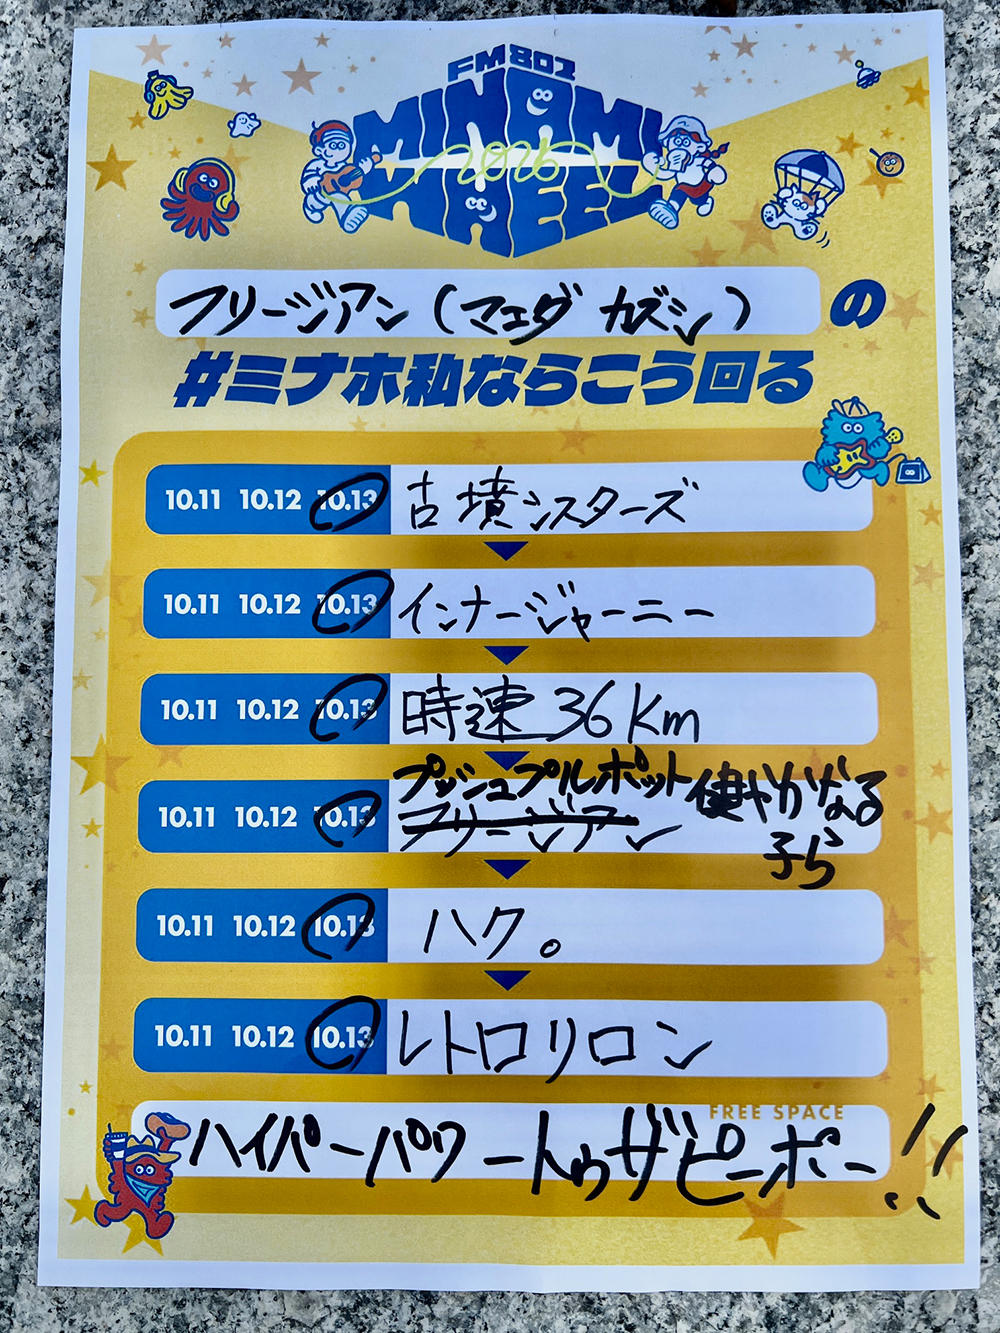 FM802
MINAMI
2026
WHEEL
フリージアン(マエダ カズシ)の
#ミナホ私ならこう回る
10.11 10.12 10.13 古墳シスターズ
10.11 10.12 10.13 インナージャーニー
10.11 10.12 10.13 時速36km
プッシュプルポット 健やかなる
10.11 10.12 10.13 フリージアン
子ら
10.11 10.12 10.13 ハク。
10.11 10.12 10.13 レトロリロン
FREE SPACE
ハイパーパワートゥザピーポー!!